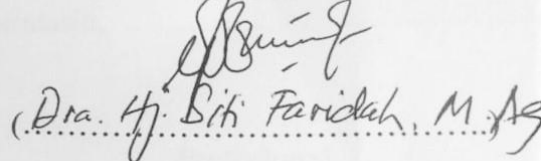 (Dra. Hj. Siti Faridah, M.Ag